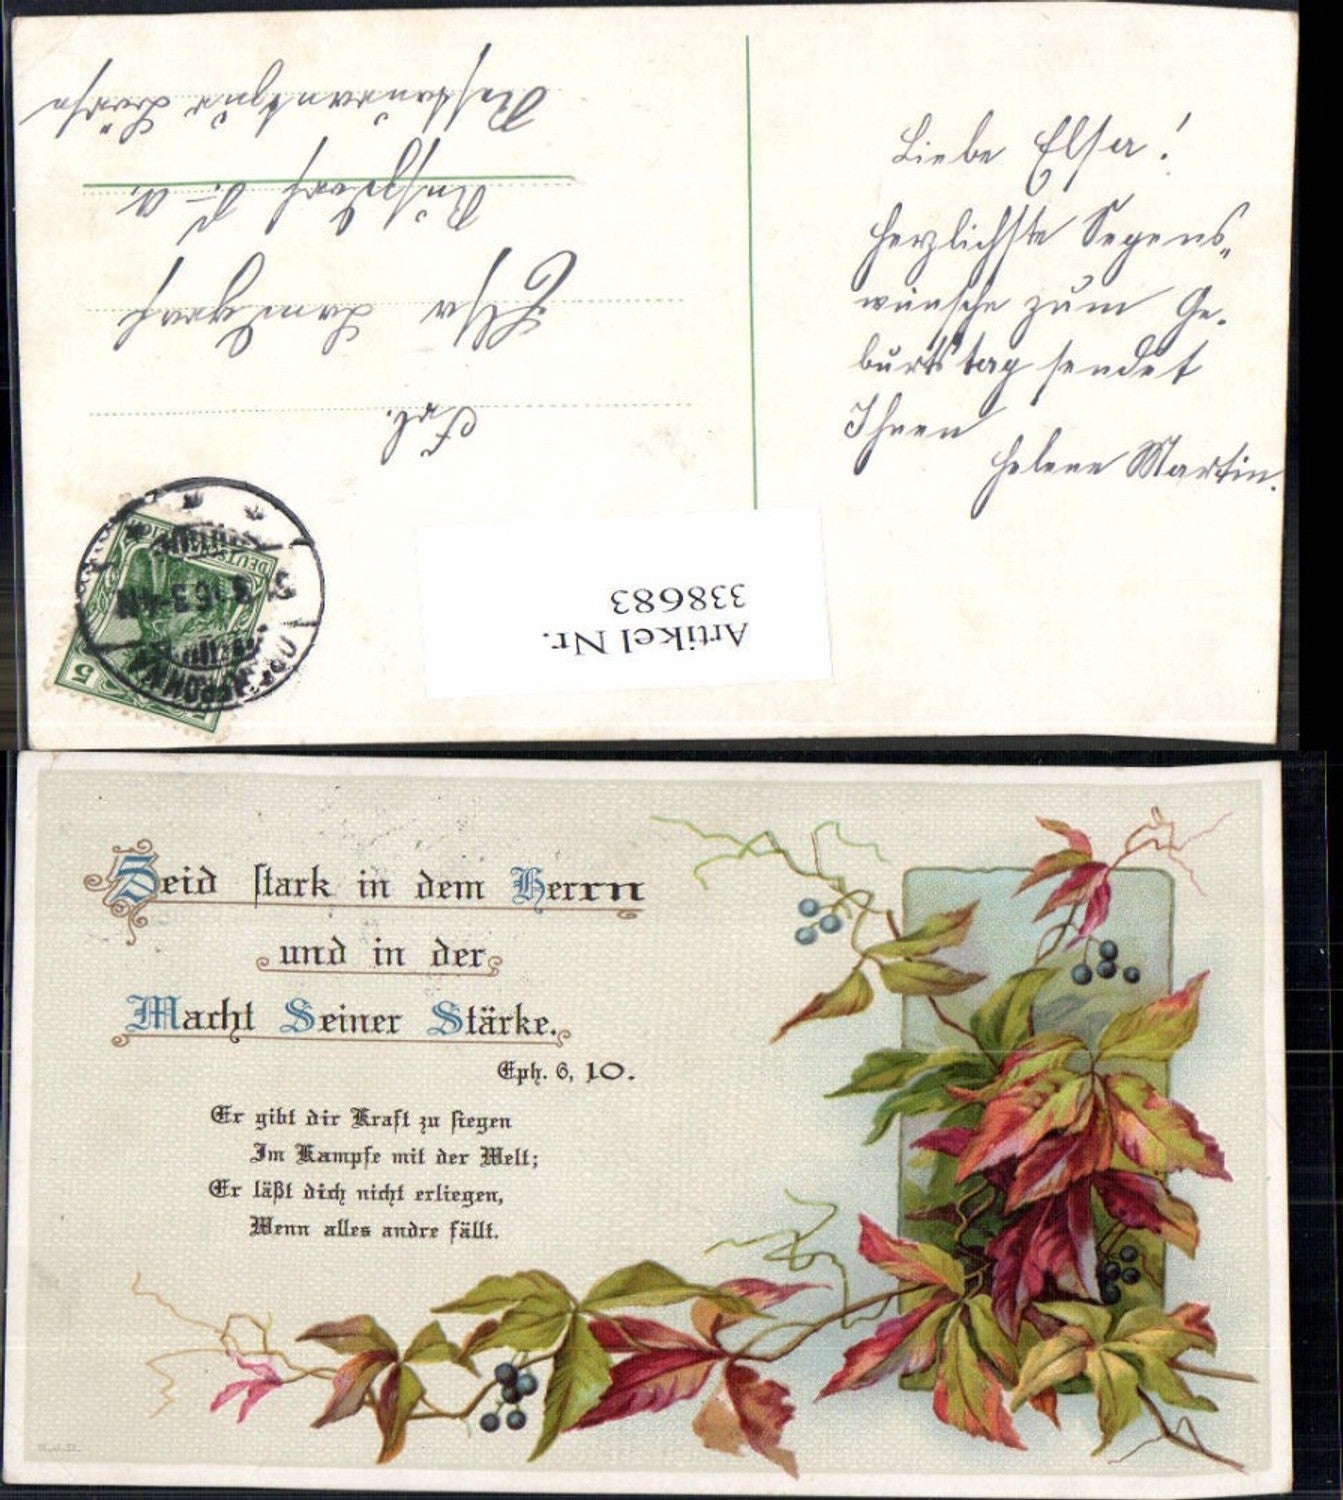 Liebe Elsa!
Herzlichste Segens-
wünsche zum Ge-
burtstag sendet
Ihnen
Helene Martin.
Frl.
Elsa Landgraf
DEUTSCHES REICH
5
Artikel Nr.
338683
Seid stark in dem Herrn
und in der
Macht Seiner Stärke.
Eph. 6, 10.
Er gibt dir Kraft zu siegen
Im Kampfe mit der Welt;
Er läßt dich nicht erliegen,
Wenn alles andre fällt.